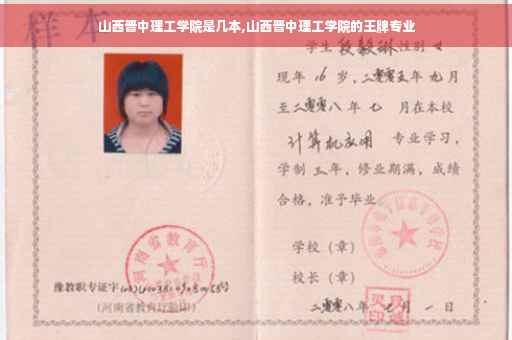 山西晋中理工学院是几本,山西晋中理工学院的王牌专业
样本
学生段毅琳性别女
现年16岁,二零零五年九月
至二零零八年七 月在本校
计算机应用 专业学习,
学制三年,修业期满,成绩
合格,准予毕业。
学校(章)
校长(章)
二零零八年七月一日
河南省教育厅
豫教职专证字
(河南省教育厅验印)